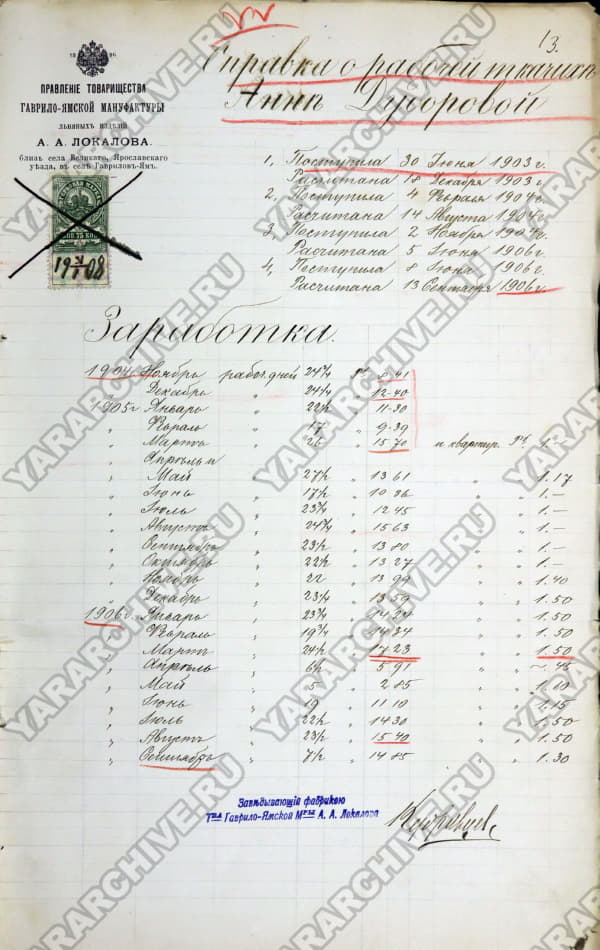 13.
1896
ПРАВЛЕНІЕ ТОВАРИЩЕСТВА
ГАВРИЛО-ЯМСКОЙ МАНУФАКТУРЫ
льняныхъ издѣлій
А. А. ЛОКАЛОВА.
близъ села Великаго, Ярославскаго
уѣзда, въ селѣ Гавриловъ-Ямъ.
Справка о рабочей ткачихѣ
Аннѣ
1, Поступила 30 Іюня 1903 г.
Расчитана 18 Декабря 1903 г.
2, Поступила 4 Февраля 1904 г.
Расчитана 14 Августа 1904 г.
3, Поступила 2 Ноября 1904 г.
Расчитана 5 Іюня 1906 г.
4, Поступила 8 Іюня 1906 г.
Расчитана 13 Сентября 1906 г.
75 КОП.
19 08
Заработка.
1904 Ноябрь рабоч. дней 24¾
Декабрь " 24¼ " 12-40
1905 г Январь " 22½ 11-30
" Февраль " 17 " 9-39
" Мартъ " 26 " 15 70 и квартир. Рб. 1.-
" Апрѣль и
Май " 27½ 13 61 " " 1. 17
" Іюнь " 17½ " 10 26 " " 1.-
" Іюль " 23¾ " 12 45 " " 1.-
" Августъ " 24¾ " 15 63 " " 1.-
" Сентябрь " 23½ " 13 80 " " 1.-
" Октябрь " 22½ " 13 27 " " 1.-
" Ноябрь " 22 " 13 99 " " 1. 40
" Декабрь " 23½ " 13 59 " " 1. 50
1906 г. Январь " 23¾ " 14 24 " " 1. 50
" Февраль " 19¾ " 14 34 " " 1. 50
" Мартъ " 24½ " 17 23 " " 1. 50
" Апрѣль " 6½ " 5 91 " " ~ 45
" Май " 5 " 2 85 " " 1. 10
" Іюнь " 19 " 11 10 " " 1. 15
" Іюль " 22½ " 14 30 " " 1. 50
" Августъ " 23½ " 15 40 " " 1. 50
" Сентябрь " 7½ " 14 85 " " 1. 30
Завѣдывающій фабрикою
Т-ва Гаврило-Ямской М-ры А. А. Локалова
YARARCHIVE.RU